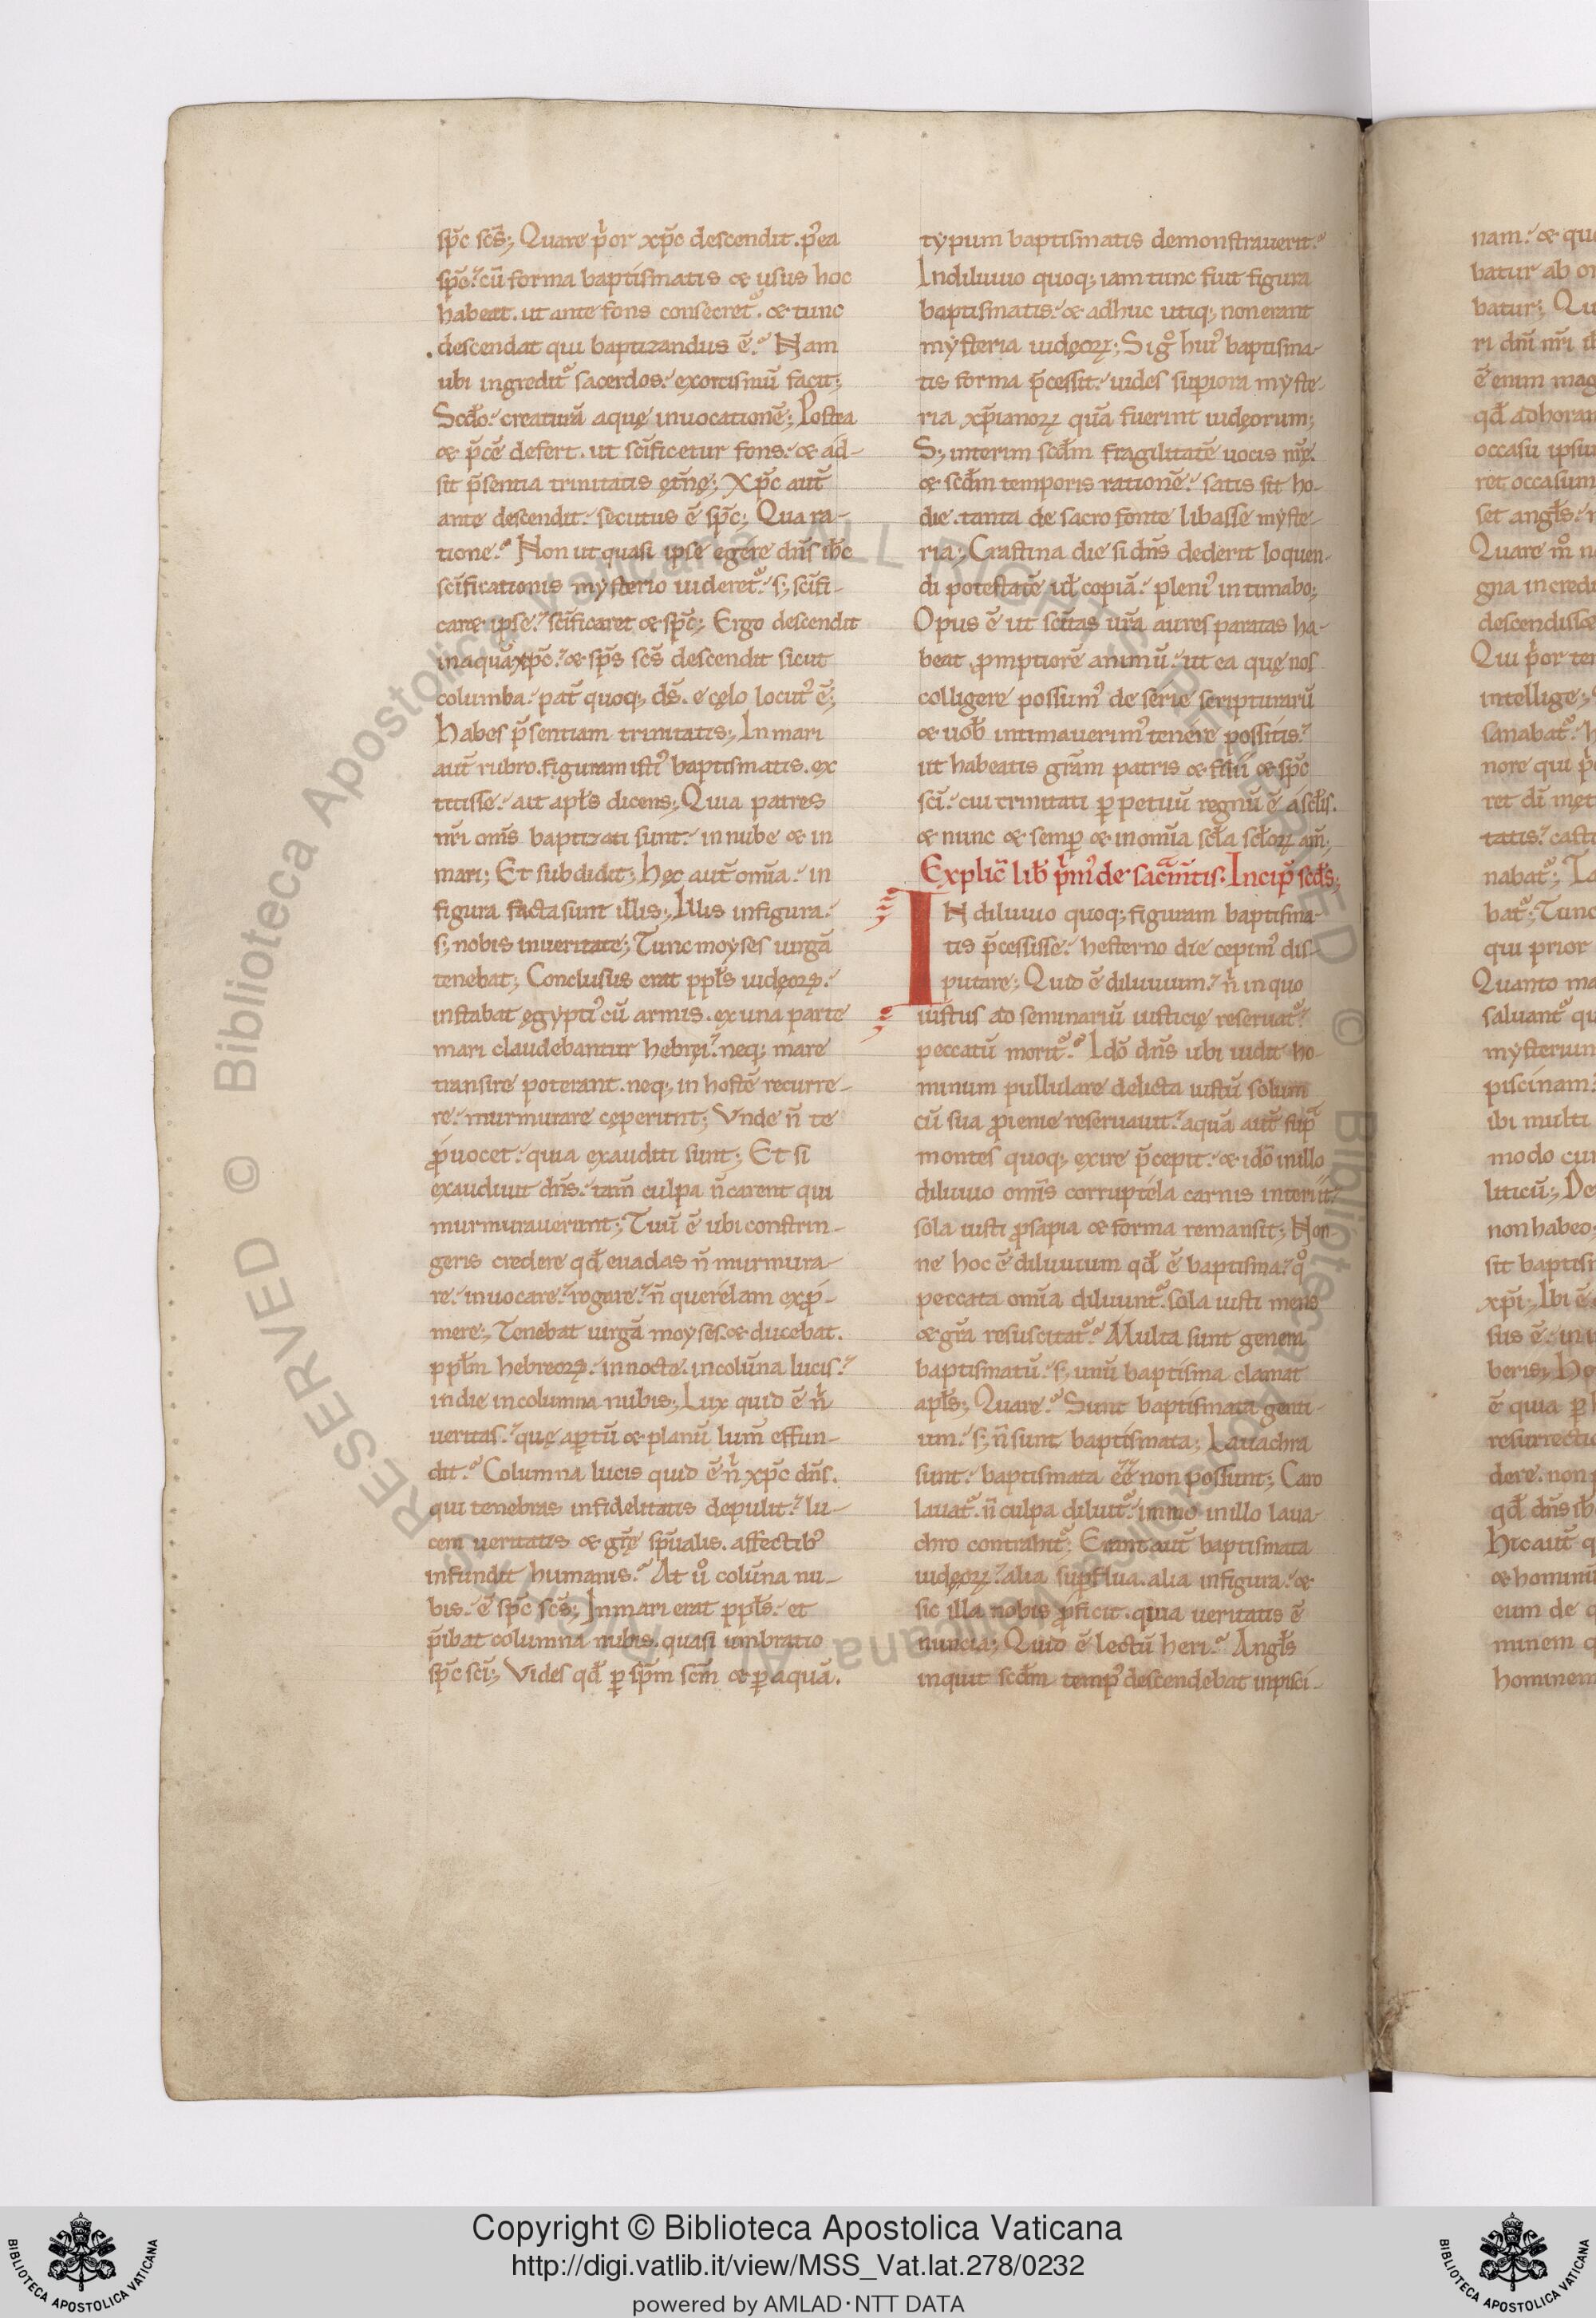 sp̄c sc̄s; Quare p̓or xp̄c descendit. p̓ea
sp̄c. cū forma baptismatis & usus hoc
habeat. ut ante fons consecret̓. & tunc
descendat qui baptizandus ē. Nam
ubi ingredit̓ sacerdos. exorcismū facit;
Scd̄o. creaturā aquę inuocationē; Postea
& p̄cē defert. ut sc̄ificetur fons. & ad-
sit p̄sentia trinitatis ęt̄nę; Xp̄c aut̄
ante descendit. secutus ē sp̄c; Qua ra-
tione. Non ut quasi ipse egere dn̄s ih̄c
sc̄ificationis mysterio uideret̓. s; sc̄ifi-
care ipse. sc̄ificaret & sp̄c; Ergo descendit
in aquā xp̄c. & sp̄s sc̄s descendit sicut
columba. pat̄ quoq; ds̄. e cęlo locut̓ ē;
Habes p̄sentiam trinitatis; In mari
aut̄ rubro. figuram isti̓ baptismatis. ex
titisse. ait apl̄s dicens; Quia patres
nr̄i om̄s baptizati sunt. in nube & in
mari; Et subdidit; Hęc aut̄ om̄ia. in
figura facta sunt illis; Illis in figura.
s; nobis in ueritate; Tunc moyses uirgā
tenebat; Conclusus erat ppl̄s iudęoꝝ.
instabat ęgypti̓ cū armis. ex una parte
mari claudebantur hebręi. neq; mare
transire poterant. neq; in hostē recurre-
re. murmurare cęperunt; Vnde n̄ te
ꝓuocet. quia exauditi sunt; Et si
exaudiuit dn̄s. tam̄ culpa n̄ carent qui
murmurauerunt; Tuū ē ubi constrin-
geris credere qd̄ euadas n̄ murmura-
re. inuocare. rogare. n̄ querelam exp̓-
mere; Tenebat uirgā moyses. & ducebat.
ppl̄m hebreoꝝ. in nocte. in colūna lucis.
in die in columna nubis; Lux quid ē n̓
ueritas. quę aꝑtū & planū lum̄ effun-
dit. Columna lucis quid ē n̓ xp̄c dn̄s.
qui tenebras infidelitatis depulit. lu-
cem ueritatis & gr̄ę sp̄ualis. affectib̓
infundit humanis. At u̓ colūna nu-
bis. ē sp̄c sc̄s; In mari erat ppl̄s. et
p̄ibat columna nubis. quasi umbratio
sp̄c sc̄i; Vides qd̄ ꝑ sp̄m sc̄m & ꝑ aquā.
typum baptismatis demonstrauerit.
In diluuio quoq; iam tunc fuit figura
baptismatis. & adhuc utiq; non erant
mysteria iudęoꝝ; Sig̓ hui̓ baptisma-
tis forma p̄cessit. uides superiora myste-
ria xp̄ianoꝝ quā fuerint iudęorum;
S; interim scd̄m fragilitatē uocis nr̄ę.
& scd̄m temporis rationē. satis sit ho-
die. tanta de sacro fonte libasse myste-
ria; Crastina die si dn̄s dederit loquen-
di potestatē ul̄ copiā. pleni̓ intimabo;
Opus ē ut sc̄itas ur̄a aures paratas ha-
beat ꝓmptiorē animū. ut ea quę nos
colligere possum̓ de serie scripturarū
& uob̄ intimauerim̓ tenere possitis.
ut habeatis gr̄am patris & filii & sp̄c
sc̄i. cui trinitati ꝑpetuū regnū ē a scl̄is.
& nunc & semꝑ & in om̄ia scl̄a scl̄oꝝ am̄;
Explic̄ lib̄ p̓m̓ de sacm̄tis. Incip̄ scd̄s;
IN diluuio quoq; figuram baptisma-
tis p̄cessisse. hesterno die cepim̓ dis-
putare; Quid ē diluuium. n̓ in quo
iustus ad seminariū iusticię reseruat̓.
peccatū morit̓. Idō dn̄s ubi uidit ho-
minum pullulare delicta iustū solum
cū sua ꝓienie reseruauit. aquā aut̄ sup̄
montes quoq; exire p̄cepit. & idō in illo
diluuio om̄is corruptela carnis interiit.
sola iusti ꝓsapia & forma remansit; Non-
ne hoc ē diluuium qd̄ ē baptisma. q̊
peccata om̄ia diluunt̓. sola iusti mens
& gr̄a resuscitat̓. Multa sunt genera
baptismatū. s; unū baptisma clamat
apl̄s; Quare. Sunt baptismata genti-
um. s; n̄ sunt baptismata; Lauachra
sunt. baptismata ēē non possunt; Caro
lauat̓. n̄ culpa diluit̓. immo in illo laua-
chro contrahit̓; Erant aut̄ baptismata
iudęoꝝ. alia suꝑflua. alia in figura. &
sic illa nobis ꝓficit. quia ueritatis ē
nuncia; Quid ē lectū heri. Angl̄s
inquit scd̄m temp̓ descendebat in pisci-
nam. & que
batur ab
batur; Qu
ri dn̄i nr̄i
ē enim mag
qd̄ ad horam
occasu ipsiu
ret occasum
set angl̄s.
Quare
gna incredu
descendisse
Qui p̓or
intellige;
sanabat̓.
nore qui
ret di
tatis. casti
nabat̓;
bat̓; Tunc
qui prior
Quanto ma
saluant̓ qu
mysterium
piscinam.
ibi multi
modo cur
liticū; De
non habeo;
sit baptism
xp̄i; Ibi ē
sus ē. in
beris; Ho
ē quia ꝑ
resurrectio
dere. non
qd̄ dn̄s ih̄
Hic aut̄ q
& hominū
eum de
minem q
hominem
© Biblioteca Apostolica Vaticana ALL RIGHTS RESERVED © Biblioteca Apostolica Vaticana ALL RIGHTS RESERVED
Copyright © Biblioteca Apostolica Vaticana
http://digi.vatlib.it/view/MSS_Vat.lat.278/0232
powered by AMLAD·NTT DATA
BIBLIOTECA APOSTOLICA VATICANA
BIBLIOTECA APOSTOLICA VATICANA